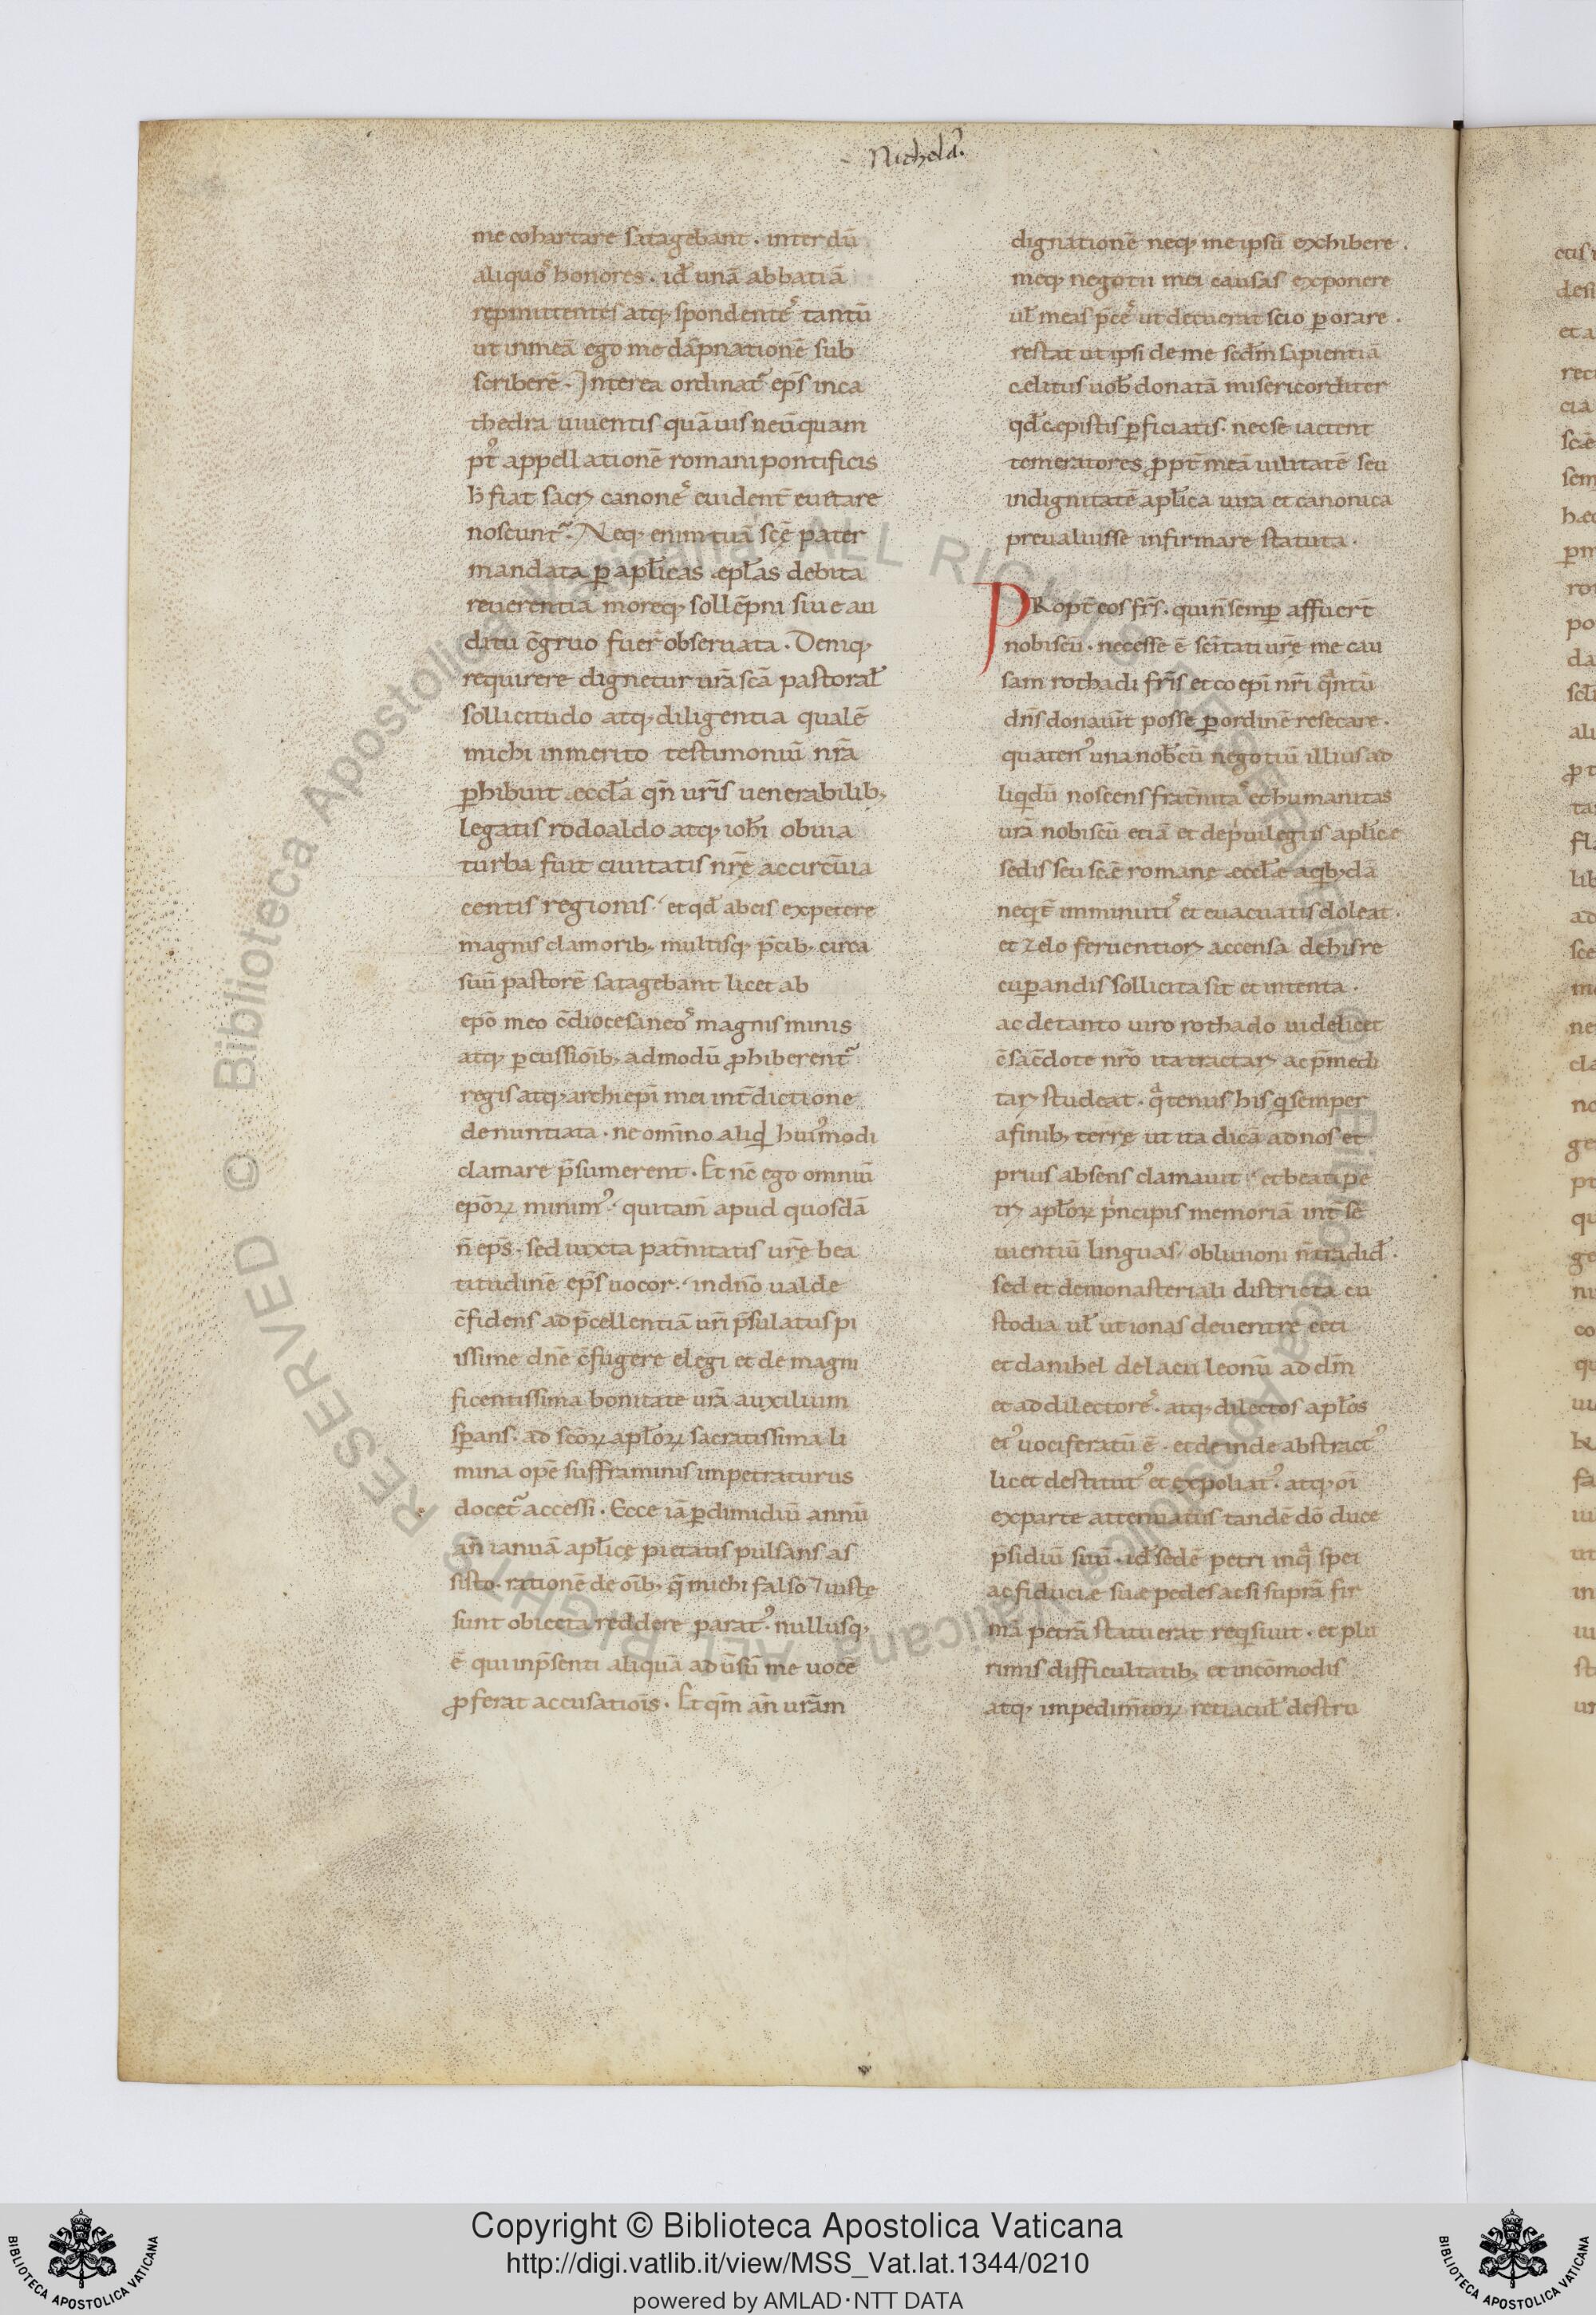 Nicholaˀ.
me cohartare satagebant · interdū
aliquoˢ honores · id ̄ unā abbatiā
repmittentes atq; spondenteˢ tantū
ut in meā ego me dāpnationē sub
scriberē · Interea ordinatˀ ep̄s in ca
thedra uiuentis quāuis neūquam
pˀt appellationē romani pontificis
h̄ fiat sacrʒ canoneˢ euident̄ euitare
noscunt᷑ · Neq; enim tuā sc̄ę pater
mandata ꝑ apl̄icas epl̄as debita
reuerentia moreq; sollēpni siue au
ditu c̄gruo fuer̄ obseruata · Deniq;
requirere dignetur ur̄a sc̄a pastoral̄
sollicitudo atq; diligentia qualē
michi inmerito testimoniū nr̄a
ꝑhibuit eccl̄a qn̄ ur̄is uenerabilib;
legatis rodoaldo atq; ioh̄i obuia
turba fuit ciuitatis nr̄ę ac circūia
centis regionis · et qd̄ ab eis expetere
magnis clamorib; multisq; p̄cib; circa
suū pastorē satagebant licet ab
epō meo c̄diocesaneoˢ magnis minis
atq; ꝑcussioīb; admodū ꝓhiberent᷑
regis atq; archiepī mei int̄dictione
denuntiata · ne om̄ino aliqd huiˀmodi
clamare p̄sumerent · Et nc̄ ego omniū
epōꝝ minimˀ · qui tam̄ apud quosdā
n̄ ep̄s · sed iuxta pat̄nitatis ur̄ę bea
titudinē ep̄s uocor · in dn̄o ualde
c̄fidens ad p̄cellentiā ur̄i p̄sulatus pi
issime dn̄e c̄fugere elegi et de magni
ficentissima bonitate ur̄a auxilium
sꝑans · ad sc̄oꝝ apl̄oꝝ sacratissima li
mina opē sufframinis impetraturus
docet᷑ accessi · Ecce iā ꝑ dimidiū annū
an̄ ianuā apl̄icę pietatis pulsans as
sisto · rationē de oīb; q̄ michi falso ⁊ iustę
sunt obiecta reddere paratˀ · nullusq;
ē qui in p̄senti aliquā aduˀsū me uocē
ꝓferat accusatioīs · Et qm̄ an̄ ur̄am
dignationē neq; me ipsū exchibere ·
meq; negotii mei causas exponere
ul̄ meas p̄ceˢ ut decuerat scio ꝑorare ·
restat ut ipsi de me scdm̄ sapientiā
celitus uob̄ donatā misericorditer
qd̄ cepistis ꝑficiatis · nec se iactent
temeratores ꝓpt̄ meā uilitatē seu
indignitatē apl̄ica iura et canonica
preualuisse infirmare statuta ·
PRopt̄ eos fr̄s · qui n̄ semꝑ affuer̄t
nobiscū · necesse ē sc̄itati ur̄ę me cau
sam rothadi fr̄is et coepī nr̄i qᵃntū
dn̄s donauit̄ posse ꝑ ordinē resecare ·
quatenˀ una nob̄cū negotiū illius ad
liqdū noscens frat̄nitaˢ et humanitas
ur̄a nobiscū etiā et de pⁱuilegiis apl̄icę
sedis seu sc̄ę romanę eccl̄ę a qb;dā
neqt̄ imminutiˢ et euacuatis doleat ·
et zelo feruentiorʒ accensa de his re
cuꝑandis sollicita sit et intenta ·
ac de tanto uiro rothado uidelicet
c̄sac̄dote nr̄o ita tractarʒ ac p̄medi
tarʒ studeat · qᵃtenus his q semper
a finib; terrę ut ita dicā ad nos et
prius absens clamauit · et beati pe
trʒ apl̄oꝝ pⁱncipis memoriā int̄ se
uientiū linguas obliuioni n̄ tradid̄ ·
sed et de monasteriali districta cu
stodia ul̄ ut ionas de uentre ceti
et danihel de lacu leonū ad dm̄
et ad dilectoreˢ · atq; dilectos apl̄os
eiˀ uociferatū ē · et deinde abstractˀ
licet destitutˀ et expoliatˀ · atq; oī
ex parte attenuatus tandē dō duce
p̄sidiū suū · id ̄ sedē petri in qᵃ spei
ac fiducię suę pedes ac si supra fir
mā petrā statuerat reqsiuit · et plu
rimis difficultatib; et incōmodis
atq; impedim̄toꝝ retiacul̄ destru
Copyright © Biblioteca Apostolica Vaticana
http://digi.vatlib.it/view/MSS_Vat.lat.1344/0210
powered by AMLAD·NTT DATA
BIBLIOTECA APOSTOLICA VATICANA
BIBLIOTECA APOSTOLICA VATICANA
© Biblioteca Apostolica Vaticana ALL RIGHTS RESERVED
© Biblioteca Apostolica Vaticana ALL RIGHTS RESERVED